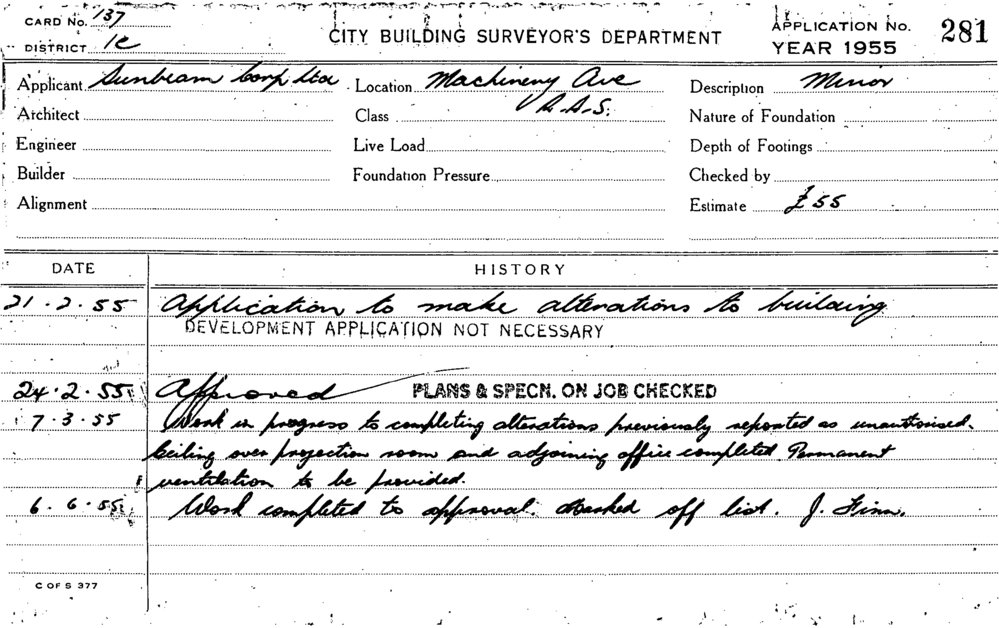 CARD No. 137
DISTRICT 1c
CITY BUILDING SURVEYOR'S DEPARTMENT
APPLICATION No. 281
YEAR 1955
Applicant Sunbeam Corp Ltd Location Machinery Ave Description Minor
Architect Class R.A.S. Nature of Foundation
Engineer Live Load Depth of Footings
Builder Foundation Pressure Checked by
Alignment Estimate £55
DATE HISTORY
21.2.55 Application to make alterations to building
DEVELOPMENT APPLICATION NOT NECESSARY
24.2.55 Approved PLANS & SPECN. ON JOB CHECKED
7.3.55 Work in progress to completing alterations previously reported as unauthorised.
Ceiling over projection room and adjoining office completed Permanent
ventilation to be provided.
6.6.55 Work completed to approval. Marked off list. J. Finn.
C OF S 377